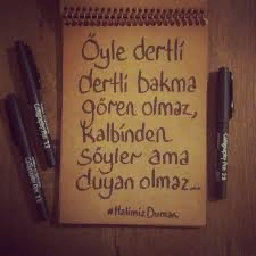 Öyle dertli
dertli bakma
gören olmaz,
Kalbinden
Söyler ama
duyan olmaz...
#HalimizDuman